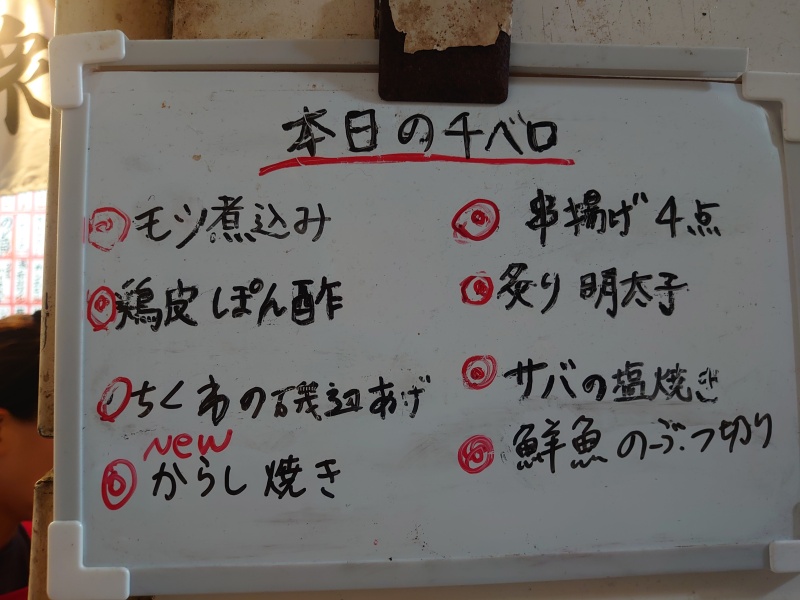 本日のチベロ
モツ煮込み
鶏皮ぽん酢
ちくわの磯辺あげ
NEW
からし焼き
串揚げ4点
炙り明太子
サバの塩焼き
鮮魚のぶつ切り